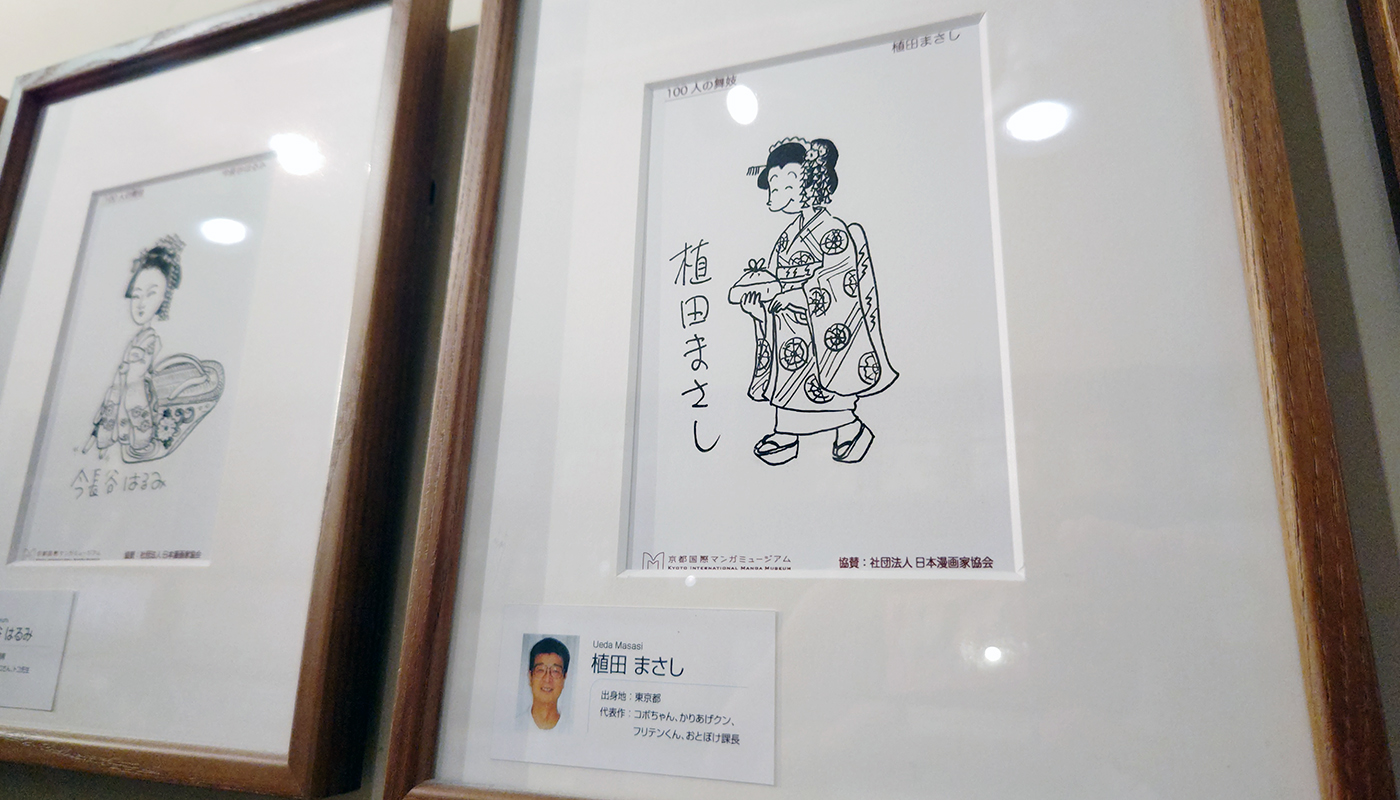 100人の舞妓
今長谷はるみ
京都国際マンガミュージアム
協賛：社団法人日本漫画家協会
はるみ
100人の舞妓
植田まさし
植田まさし
京都国際マンガミュージアム
KYOTO INTERNATIONAL MANGA MUSEUM
協賛：社団法人 日本漫画家協会
Ueda Masasi
植田 まさし
出身地：東京都
代表作：コボちゃん、かりあげクン、
フリテンくん、おとぼけ課長